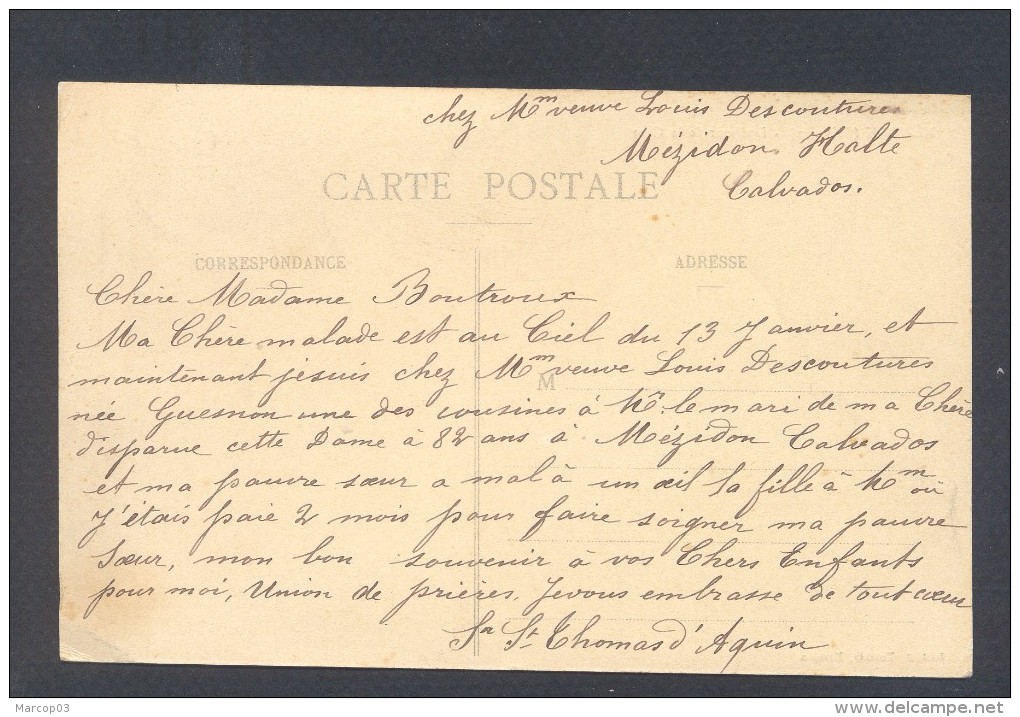 chez Mm veuve Louis Descoutures
Mézidon Halte
CARTE POSTALE
Calvados.
CORRESPONDANCE
ADRESSE
Chère Madame Boutroux
Ma Chère malade est au Ciel du 13 Janvier, et
maintenant je suis chez Mm veuve Louis Descoutures
M
née Guesnon une des cousines à Mr. le mari de ma Chère
disparue cette Dame à 82 ans à Mézidon Calvados
et ma pauvre sœur a mal à un œil la fille à Mm où
J'étais paie 2 mois pour faire soigner ma pauvre
Sœur, mon bon souvenir à vos Chers Enfants
pour moi, Union de prières. Je vous embrasse de tout cœur
Sr St Thomas d'Aquin
Marcop03
www.delcampe.net